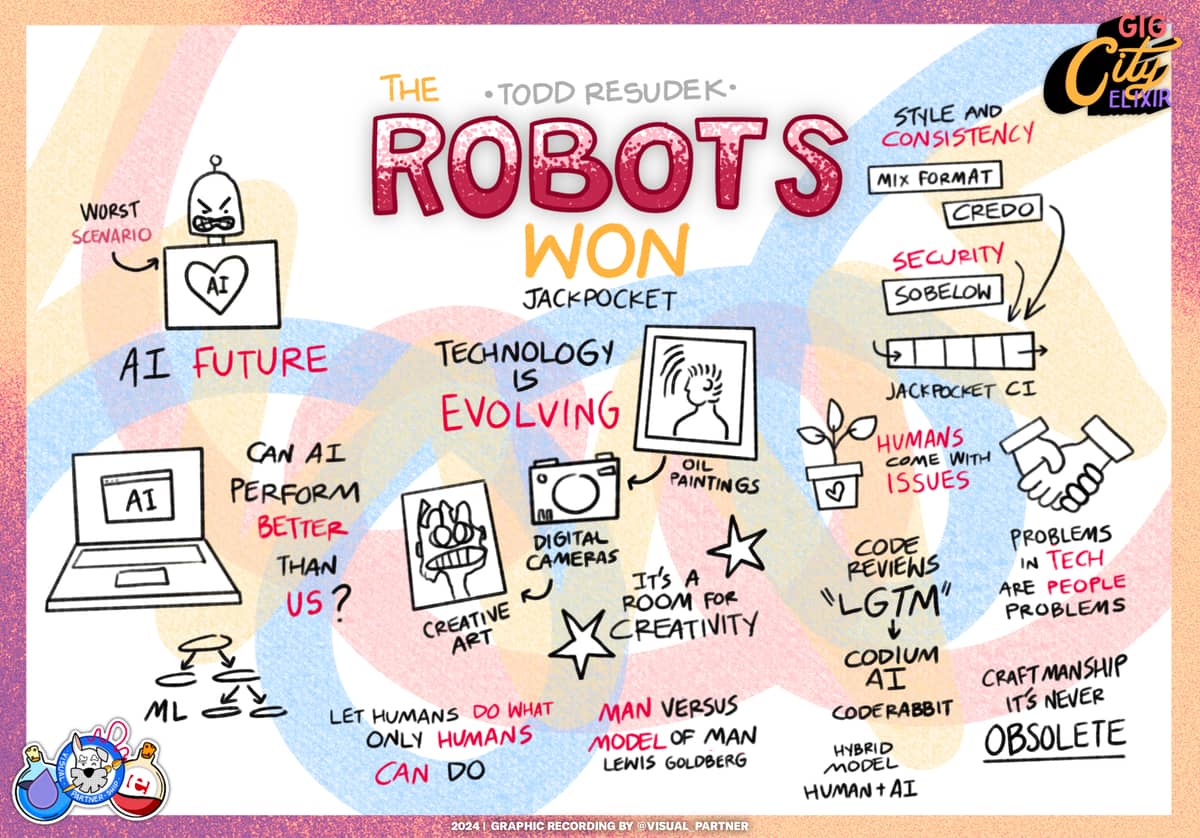 GIG
City
ELIXIR
THE
•TODD RESUDEK•
ROBOTS
WON
JACKPOCKET
WORST
SCENARIO
AI
AI FUTURE
AI
CAN AI
PERFORM
BETTER
THAN
US?
ML
TECHNOLOGY
IS
EVOLVING
OIL
PAINTINGS
DIGITAL
CAMERAS
CREATIVE
ART
IT'S A
ROOM FOR
CREATIVITY
LET HUMANS DO WHAT
ONLY HUMANS
CAN DO
MAN VERSUS
MODEL OF MAN
LEWIS GOLDBERG
STYLE AND
CONSISTENCY
MIX FORMAT
CREDO
SECURITY
SOBELOW
JACKPOCKET CI
HUMANS
COME WITH
ISSUES
PROBLEMS
IN TECH
ARE PEOPLE
PROBLEMS
CODE
REVIEWS
"LGTM"
CODIUM
AI
CODERABBIT
HYBRID
MODEL
HUMAN + AI
CRAFTMANSHIP
IT'S NEVER
OBSOLETE
VISUAL
PARTNER
2024 | GRAPHIC RECORDING BY @VISUAL_PARTNER